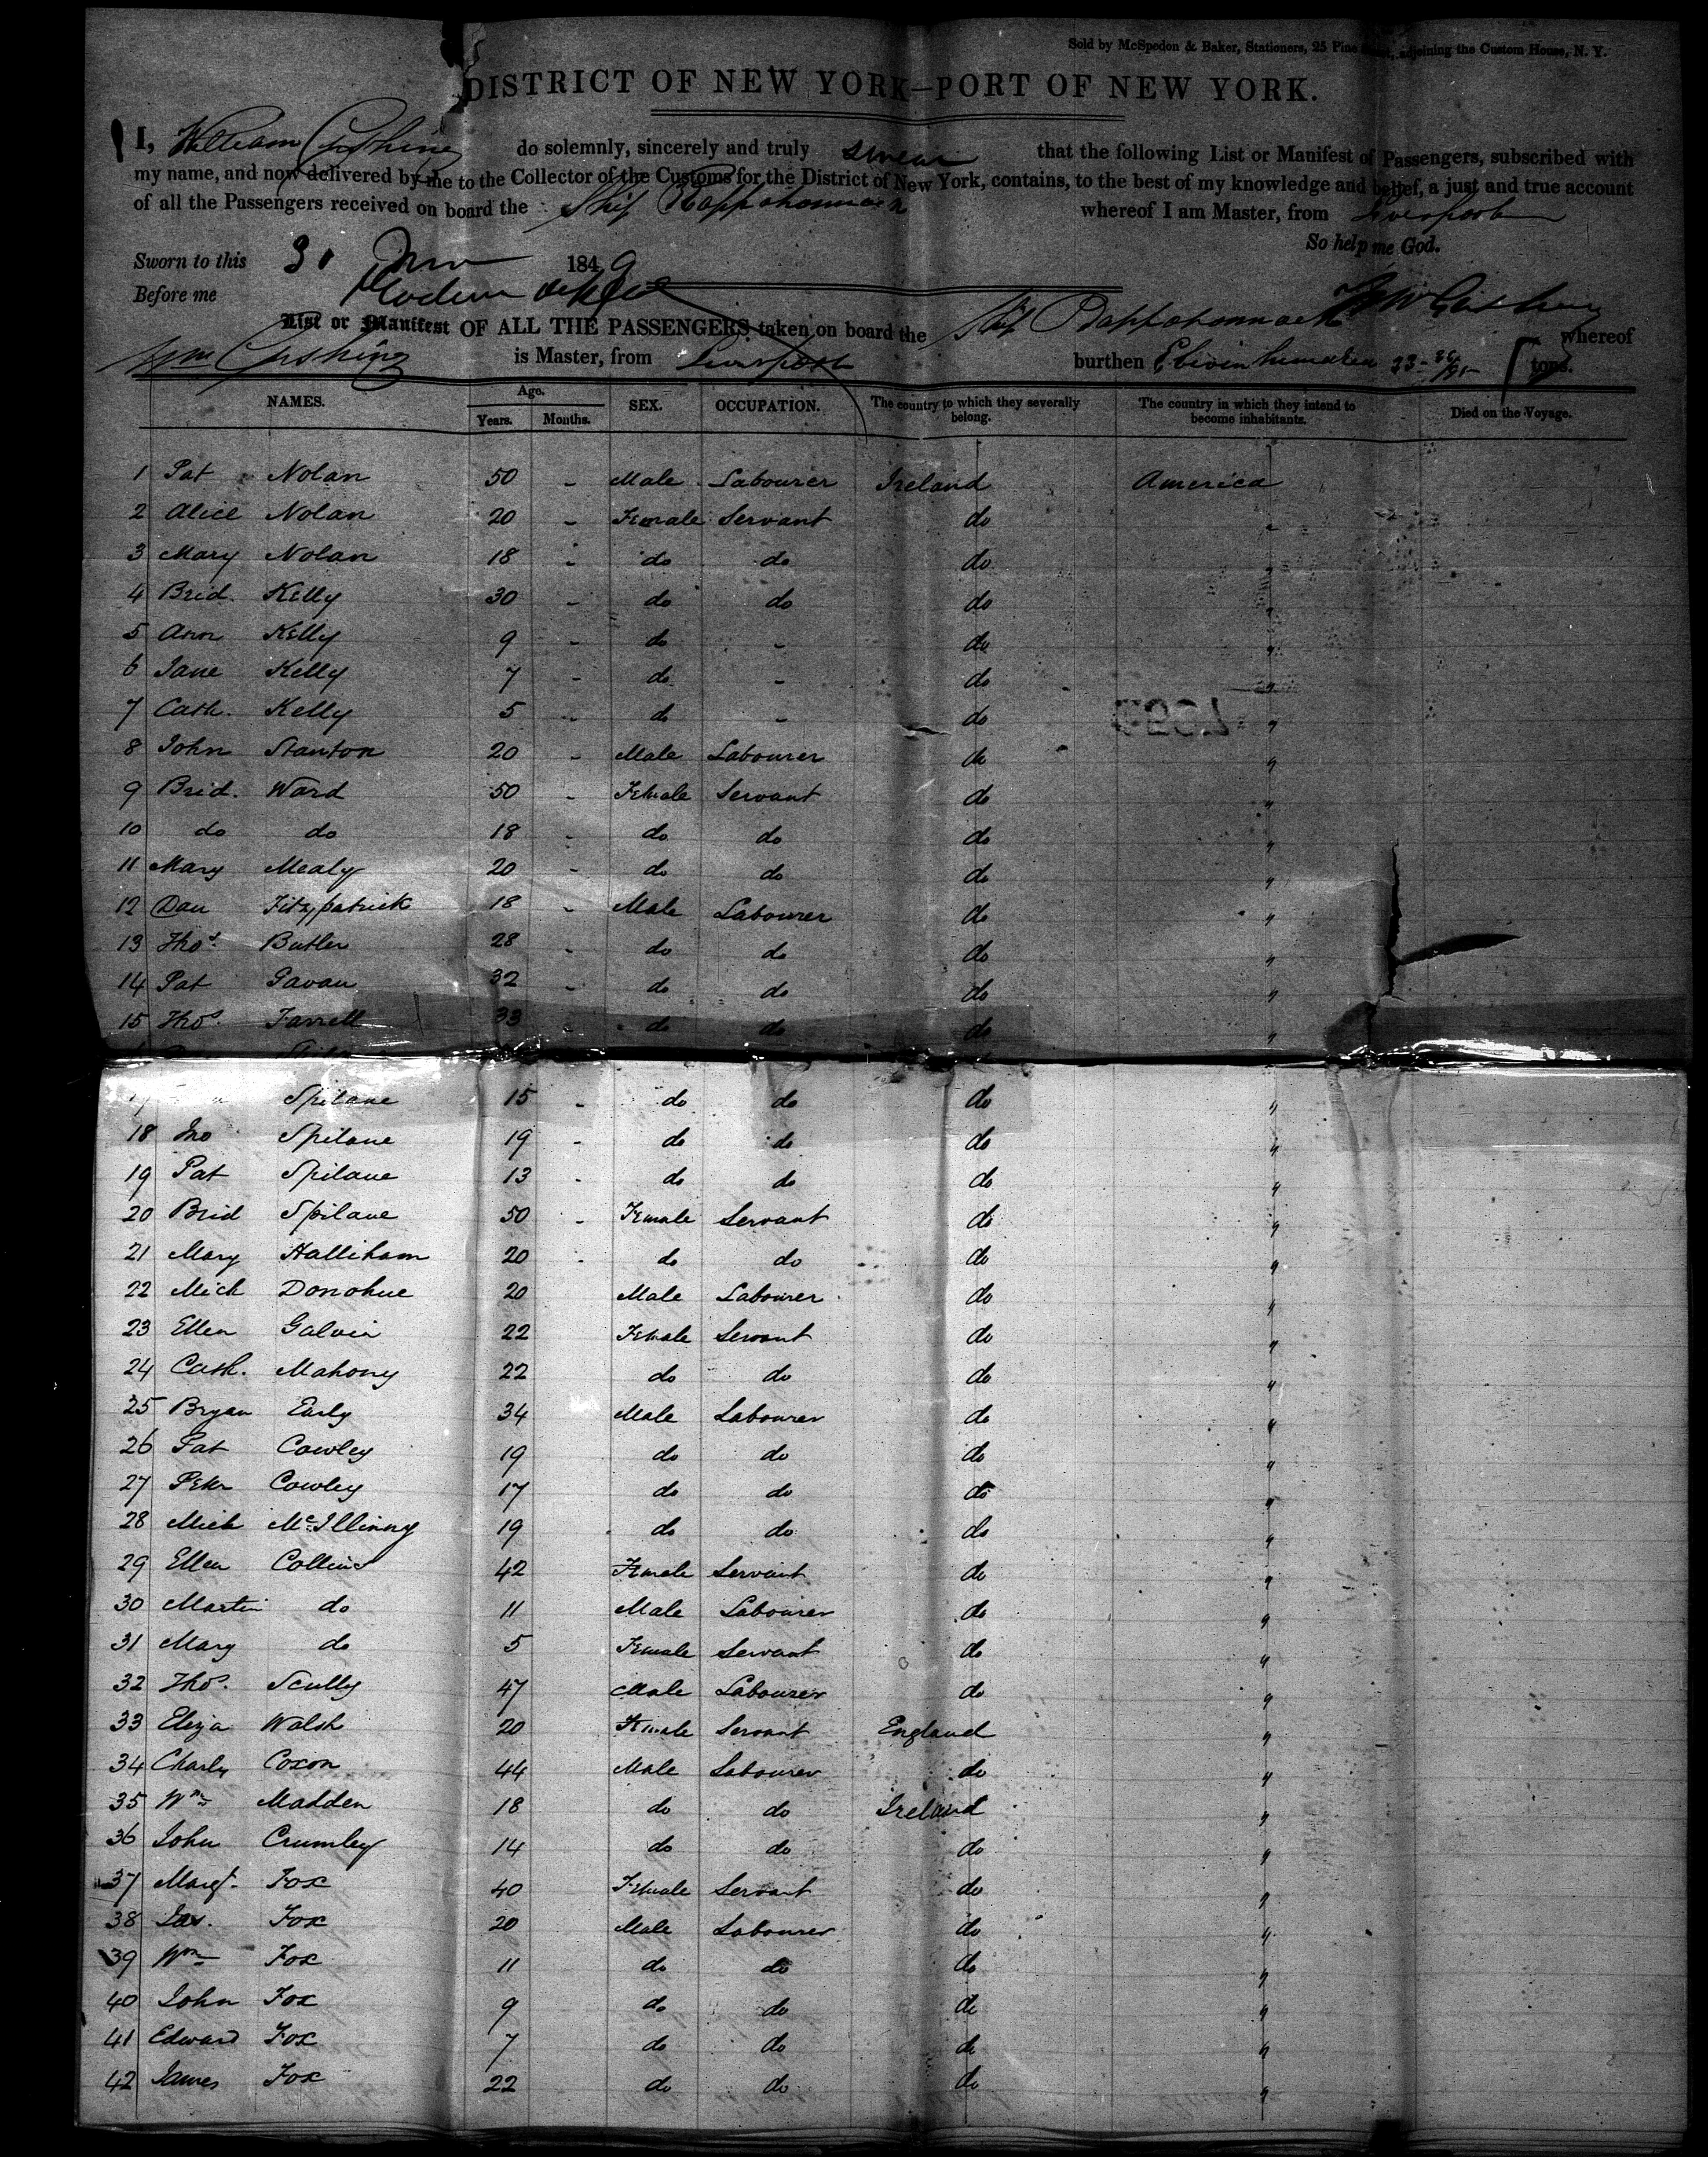 Sold by McSpedon & Baker, Stationers, 25 Pine adjoining the Custom House, N. Y.
DISTRICT OF NEW YORK—PORT OF NEW YORK.
I, William Cushing do solemnly, sincerely and truly swear that the following List or Manifest of Passengers, subscribed with
my name, and now delivered by me to the Collector of the Customs for the District of New York, contains, to the best of my knowledge and belief, a just and true account
of all the Passengers received on board the Ship Rappahannock whereof I am Master, from Liverpool
So help me God.
Sworn to this 30 1849
Before me
Wm Cushing
List or Manifest OF ALL THE PASSENGERS taken on board the Ship Rappahannock whereof
Wm Cushing is Master, from Liverpool burthen Eleven hundred 33 tons.
NAMES. Age. Years. Months. SEX. OCCUPATION. The country to which they severally belong. The country in which they intend to become inhabitants. Died on the Voyage.
1 Pat Nolan 50 - Male Labourer Ireland America
2 Alice Nolan 20 - Female Servant do "
3 Mary Nolan 18 - do do do "
4 Brid. Kelly 30 - do do do "
5 Ann Kelly 9 - do - do "
6 Jane Kelly 7 - do - do "
7 Cath. Kelly 5 - do - do "
8 John Stanton 20 - Male Labourer do "
9 Brid. Ward 50 - Female Servant do "
10 do do 18 - do do do "
11 Mary Mealy 20 - do do do "
12 Dan Fitzpatrick 18 - Male Labourer do "
13 Thos. Butler 28 - do do do "
14 Pat Gavan 32 - do do do "
15 Thos. Farrell 33 do do do "
Spilane 15 - do do do "
18 Jno Spilane 19 - do do do "
19 Pat Spilane 13 - do do do "
20 Brid Spilane 50 - Female Servant do "
21 Mary Halliham 20 - do do do "
22 Mich Donohue 20 Male Labourer do "
23 Ellen Galvin 22 Female Servant do "
24 Cath. Mahony 22 do do do "
25 Bryan Early 34 Male Labourer do "
26 Pat Cowley 19 do do do "
27 Peter Cowley 17 do do do "
28 Mich McIllinny 19 do do do "
29 Ellen Collins 42 Female Servant do "
30 Martin do 11 Male Labourer do "
31 Mary do 5 Female Servant do "
32 Thos. Scully 47 Male Labourer do "
33 Eliza Walsh 20 Female Servant England "
34 Charly Coxon 44 Male Labourer do "
35 Wm Madden 18 do do Ireland "
36 John Crumley 14 do do do "
37 Margt. Fox 40 Female Servant do "
38 Jas. Fox 20 Male Labourer do "
39 Wm Fox 11 do do do "
40 John Fox 9 do do do "
41 Edward Fox 7 do do do "
42 James Fox 22 do do do "